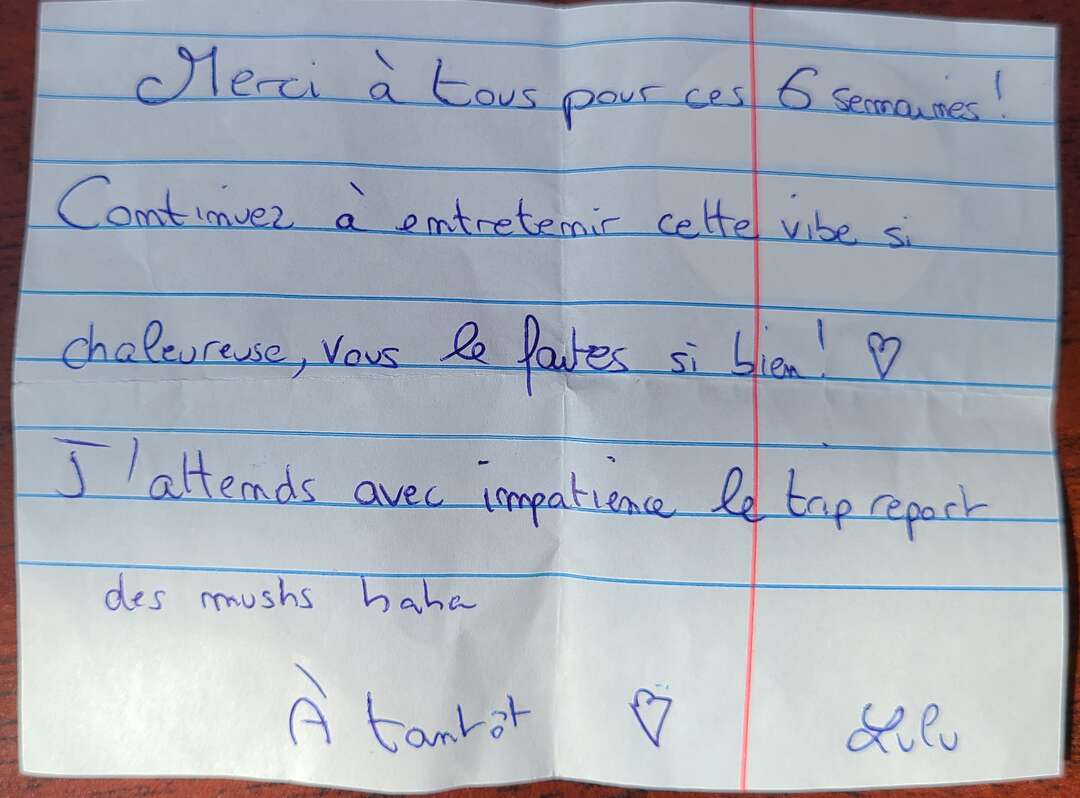 Merci à tous pour ces 6 semaines!
Continuez à entretenir cette vibe si
chaleureuse, vous le faites si bien! ♡
J'attends avec impatience le trip report
des mushs haha
À tantôt ♡ Lulu